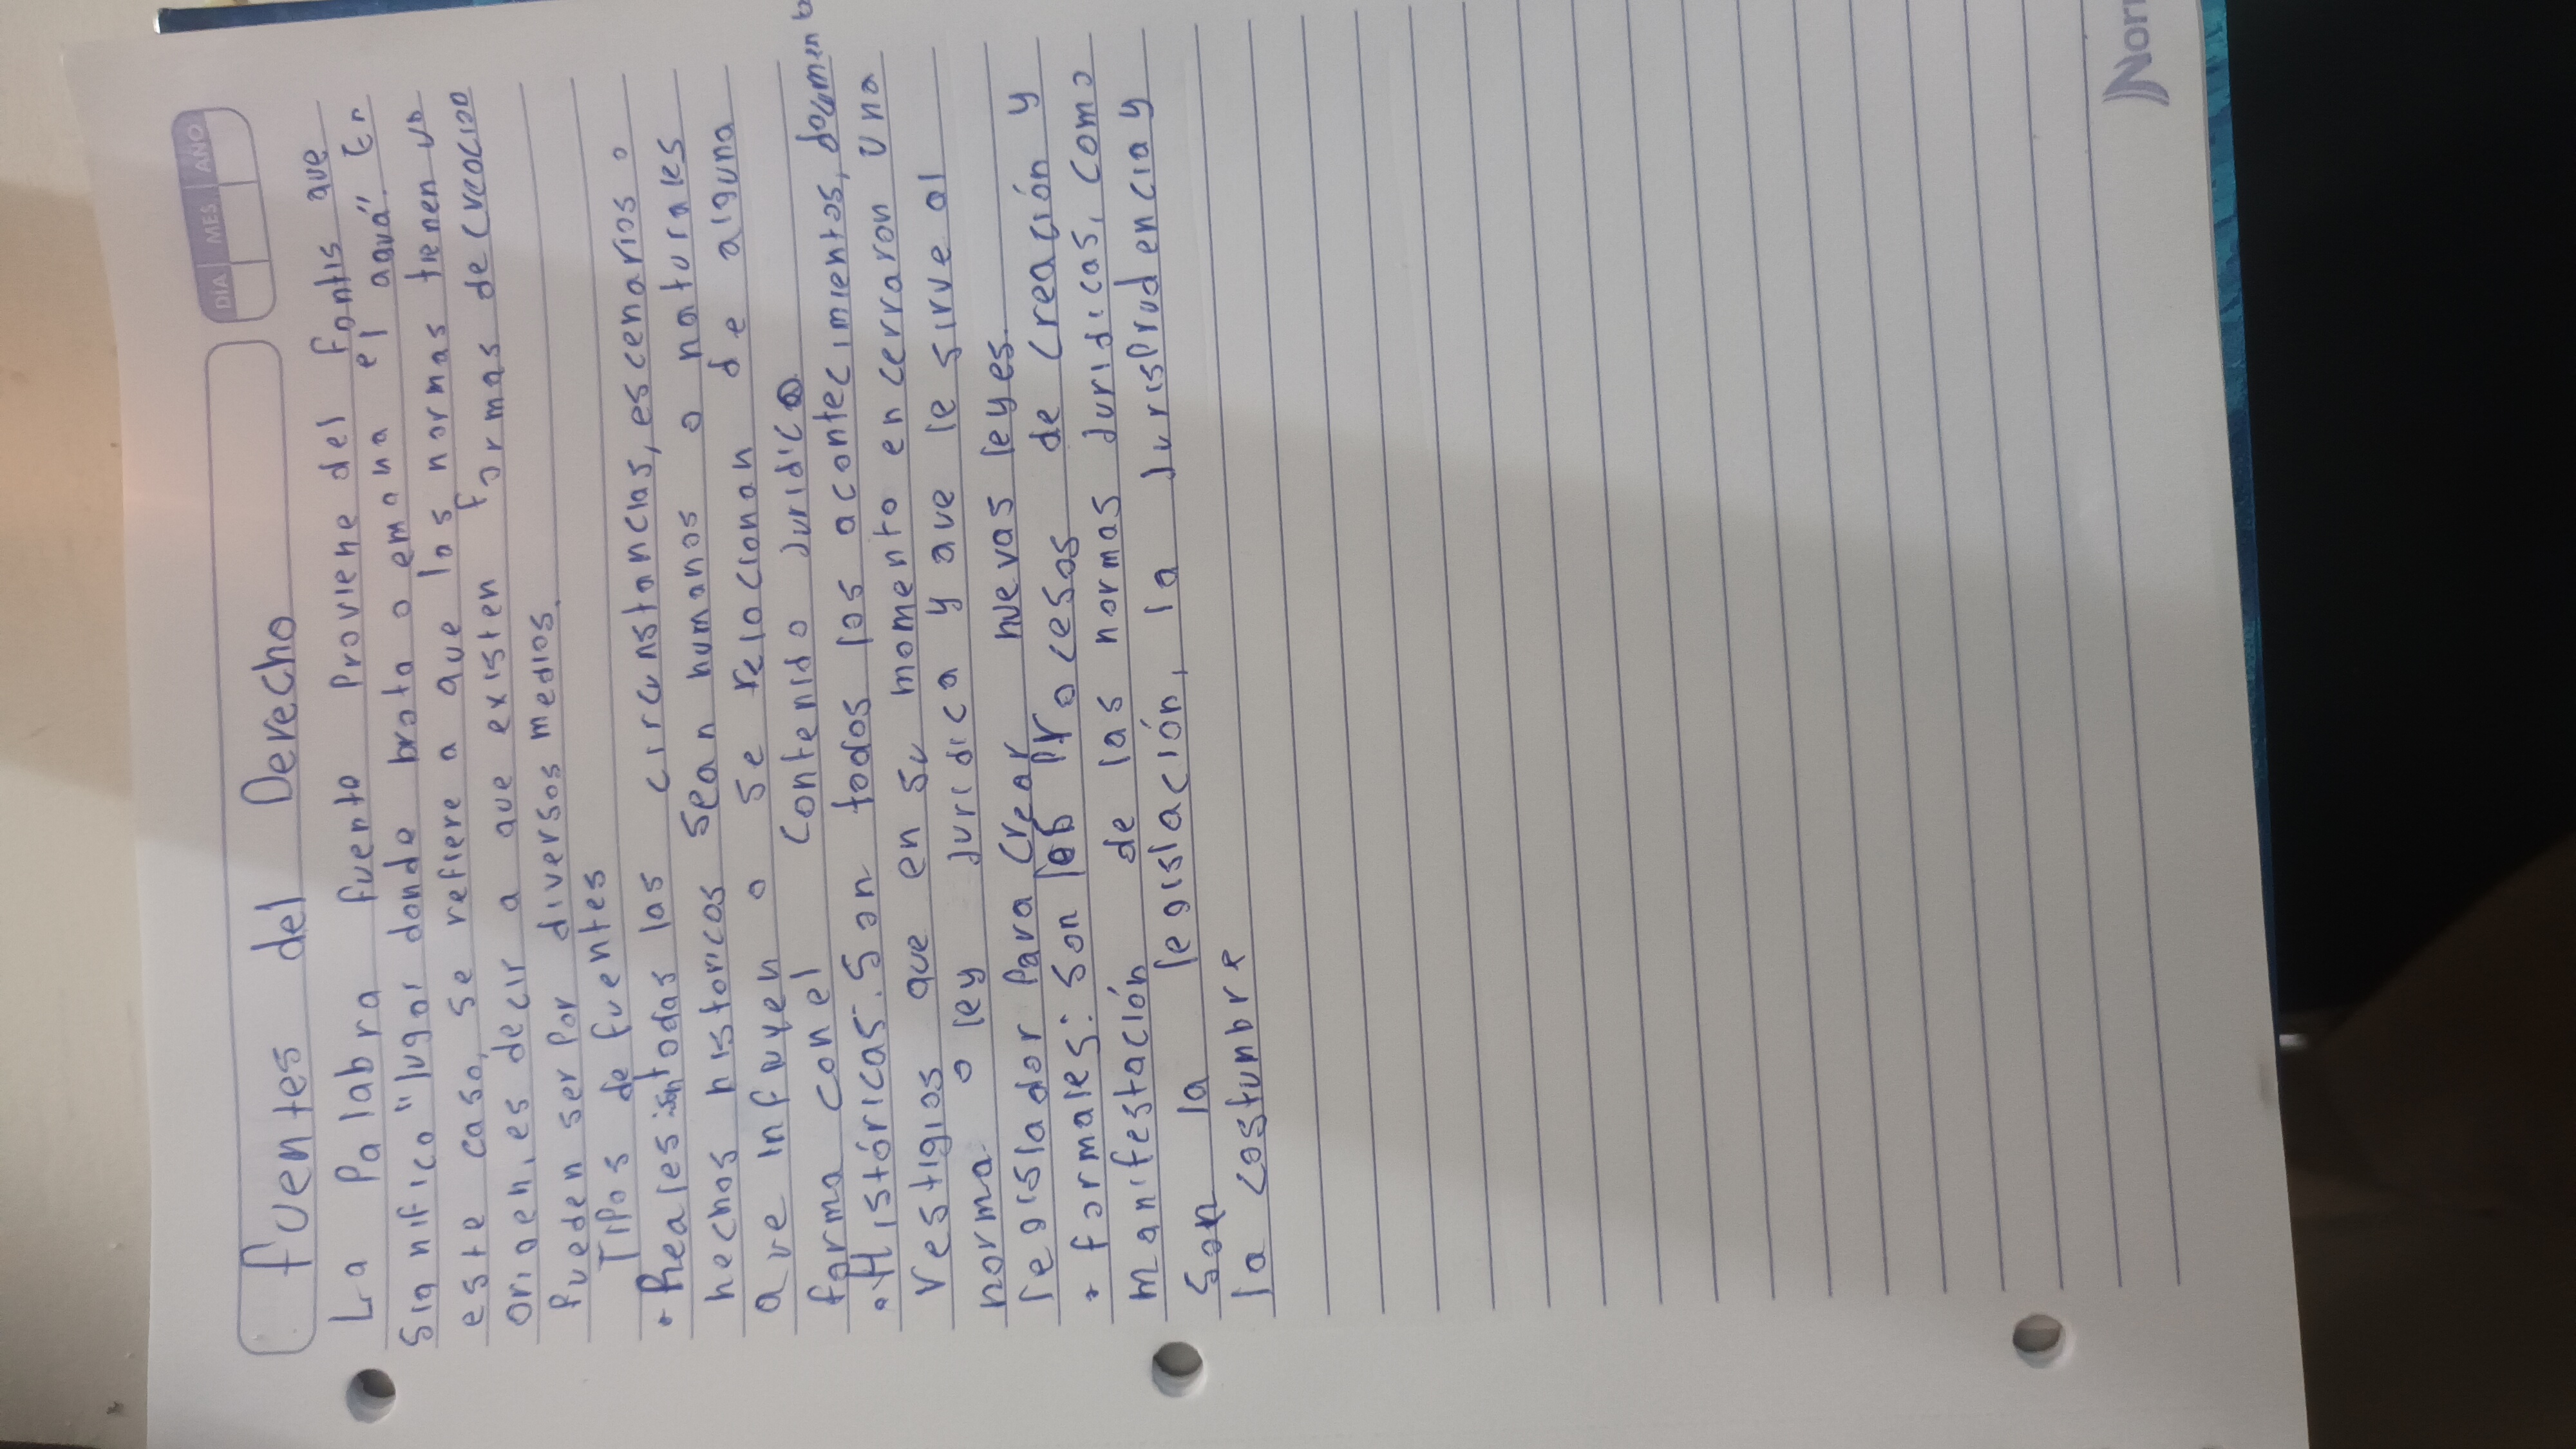 DIA MES AÑO
Fuentes del Derecho
La Palabra fuente Proviene del fontis que
Significo "lugar donde brota o emana el agua". En
este caso, se refiere a que las normas tienen un
origen, es decir a que existen formas de creación
Pueden ser Por diversos medios.
Tipos de fuentes
• Reales: son todas las circunstancias, escenarios o
hechos historicos sean humanos o naturales
que influyen o se relacionan de alguna
forma con el contenido Juridico
• Históricas: Son todos los acontecimientos, documento
Vestigios que en su momento encerraron una
norma o ley Juridica y que le sirve al
legislador Para Crear nuevas leyes.
• formales: Son los Procesos de Creación y
manifestación de las normas Juridicas, Como
Son la legislación, la Jurisprudencia y
la costunbre
Norm